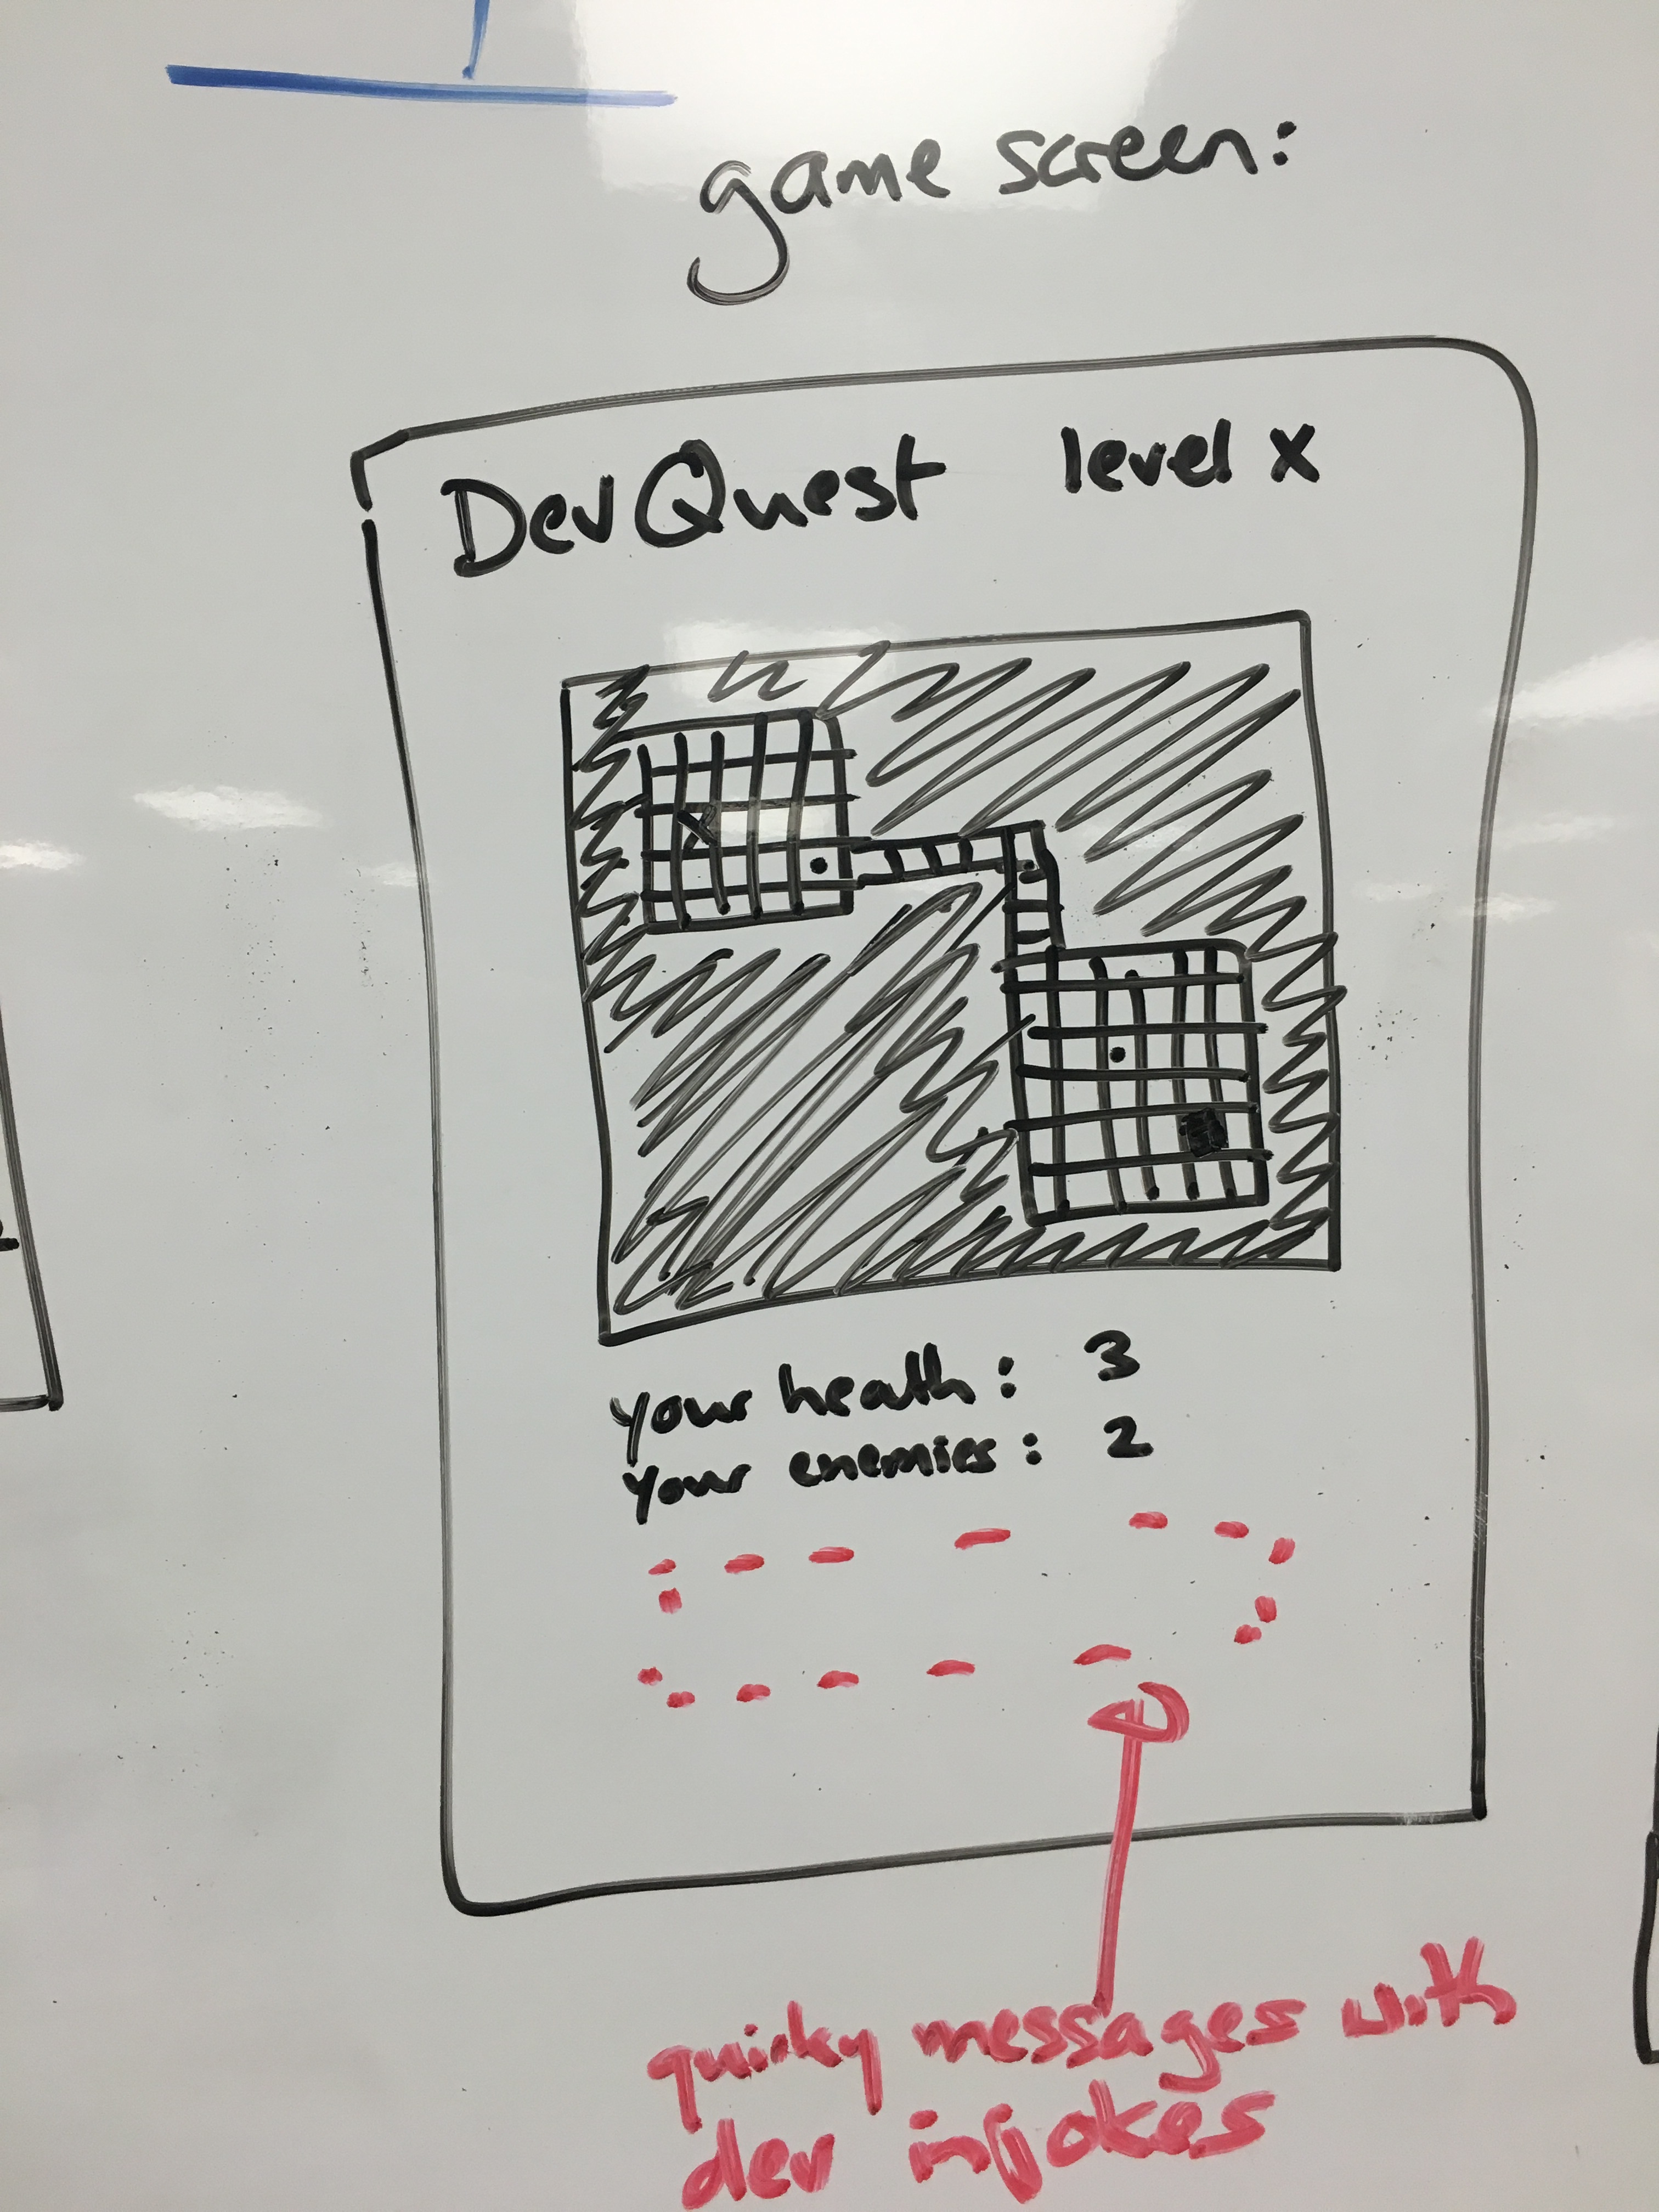 game screen:
DevQuest level x
your health: 3
your enemies: 2
quirky messages with
dev injokes